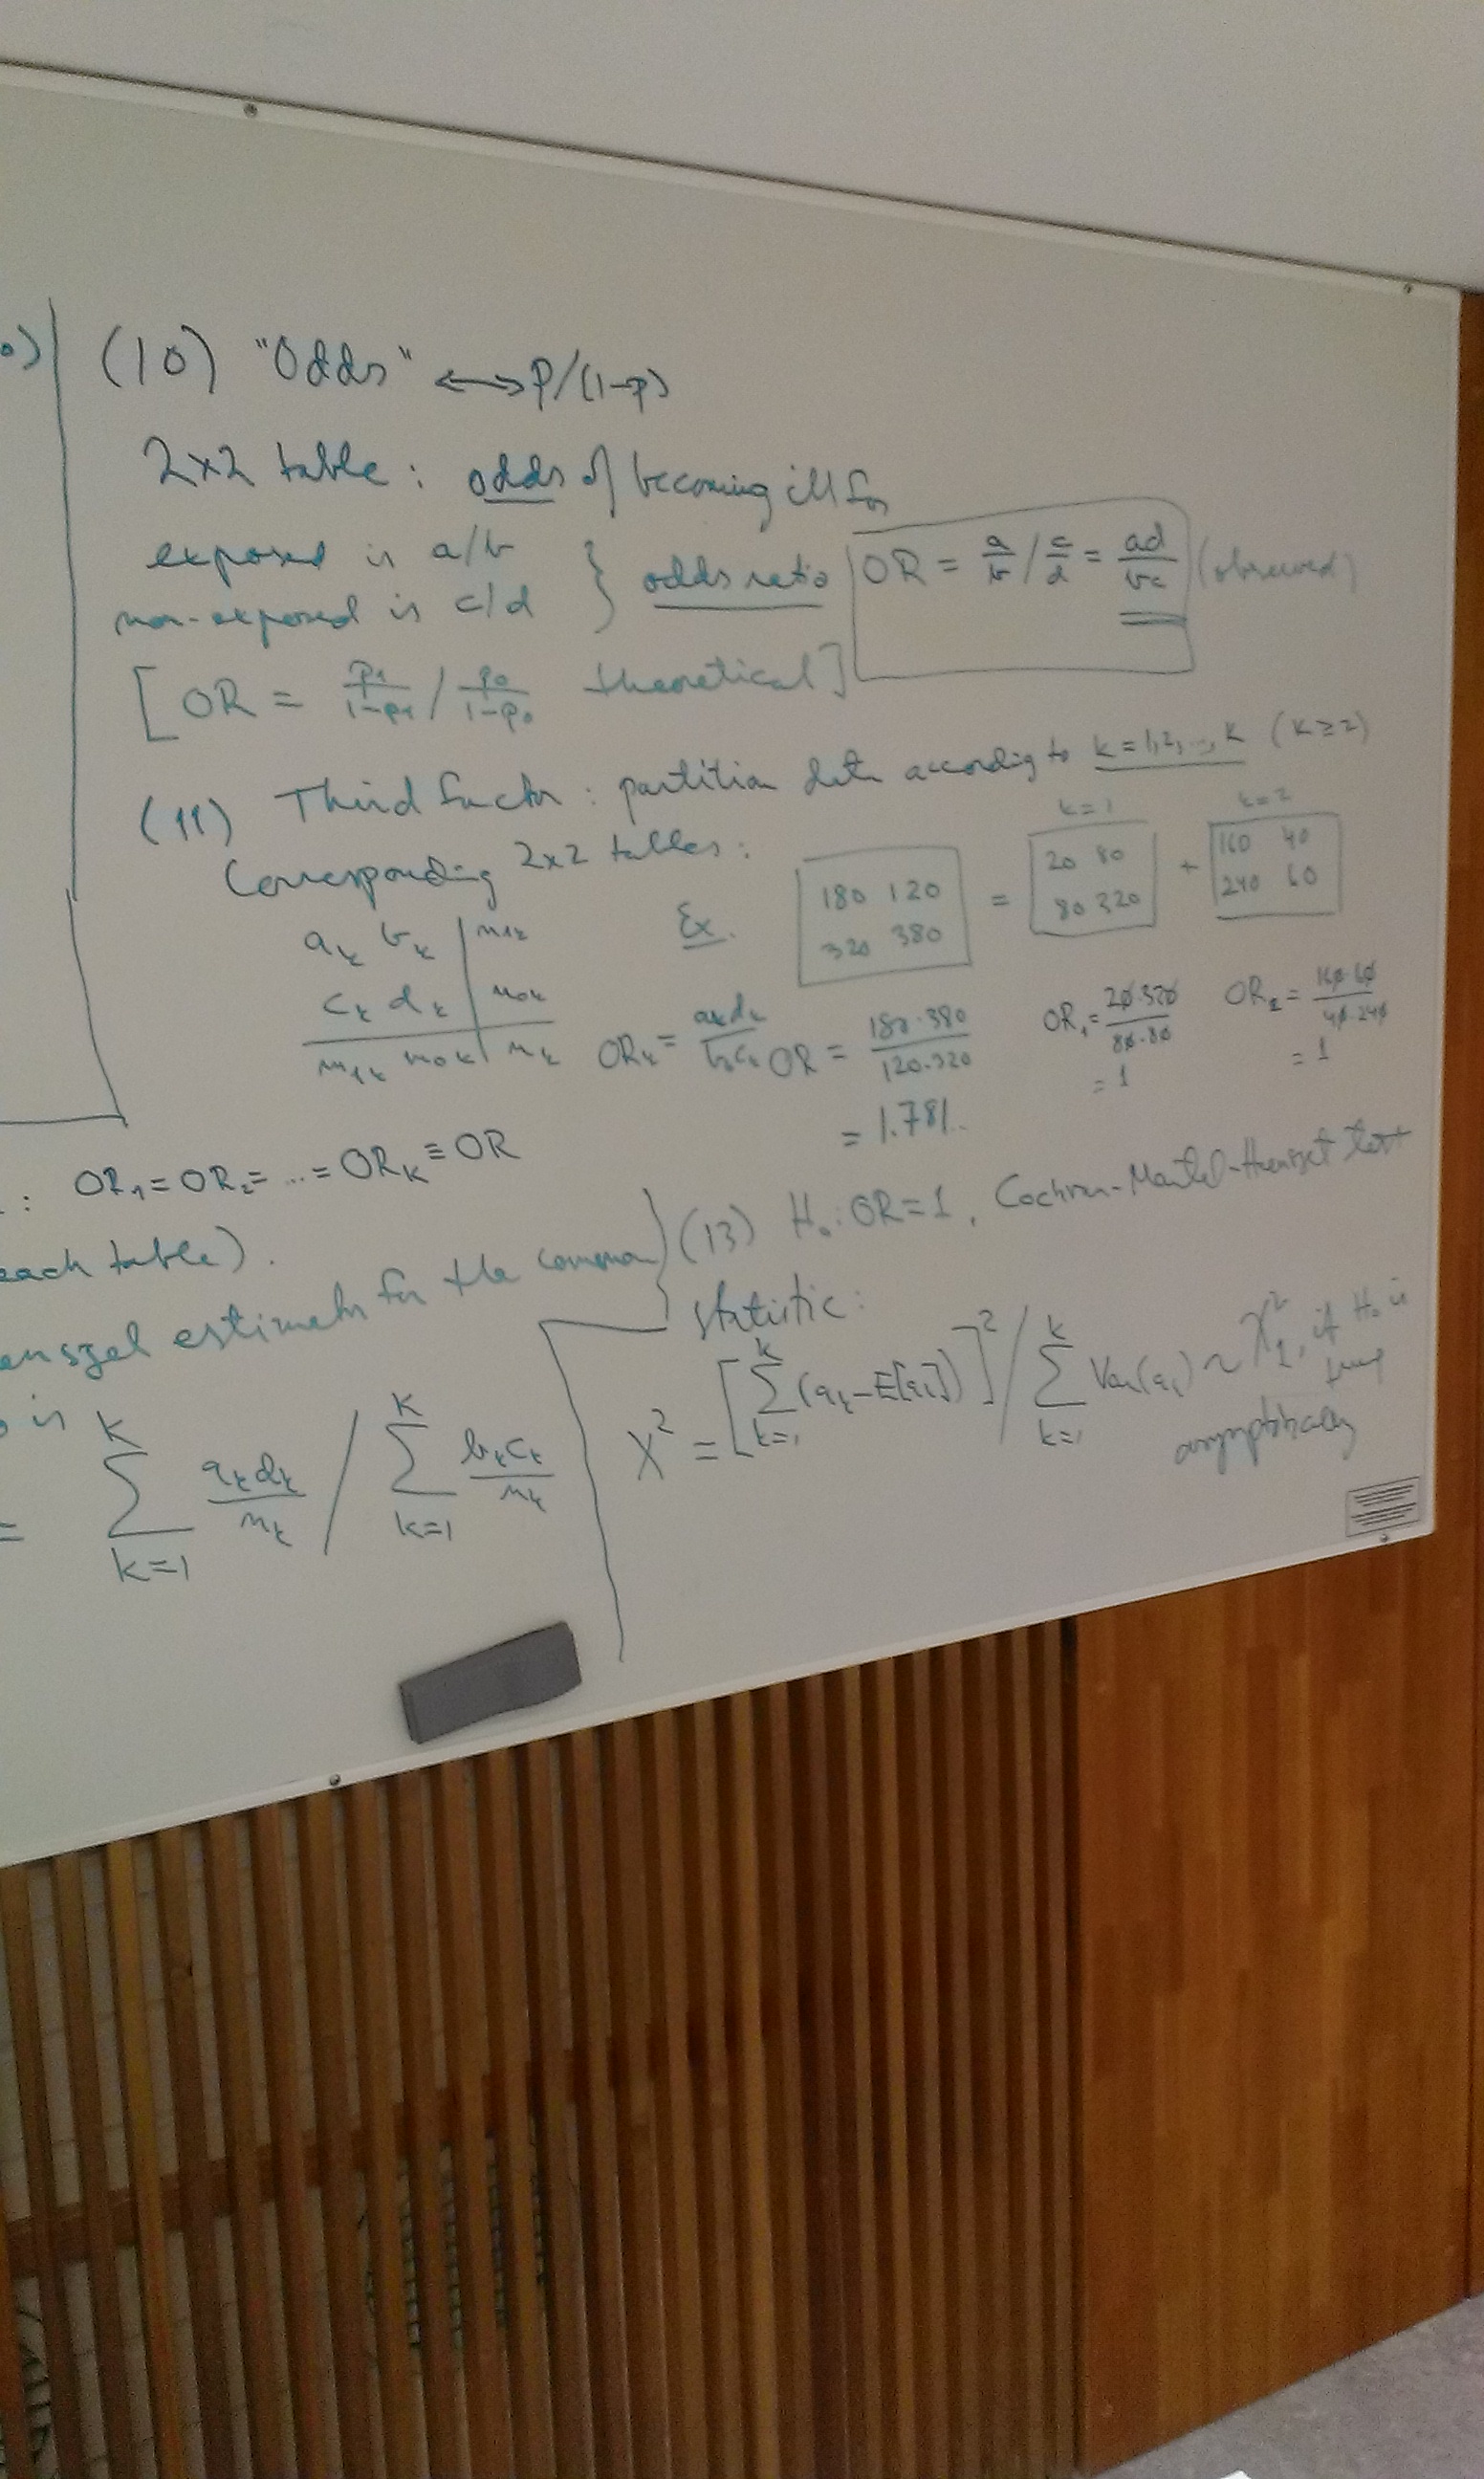 (10) "Odds" ⟷ p/(1-p)
2×2 table: odds of becoming ill for
exposed is a/b
non-exposed is c/d } odds ratio OR = a/b / c/d = ad/bc (observed)
[OR = p₁/1-p₁ / p₀/1-p₀ theoretical]
(11) Third factor: partition data according to k=1,2,...,K (K≥2)
Corresponding 2×2 tables:
k=1 k=2
aₖ bₖ | n₁ₖ
cₖ dₖ | n₀ₖ
m₁ₖ m₀ₖ | nₖ
Ex.
180 120 = 20 80 + 160 40
320 380 80 320 240 60
ORₖ = aₖdₖ/bₖcₖ
OR = 180·380/120·320
= 1.781..
OR₁ = 20·320/80·80
= 1
OR₂ = 160·60/40·240
= 1
: OR₁ = OR₂ = ... = ORₖ ≡ OR
each table).
enszel estimator for the common
is
= Σ k=1 K aₖdₖ/nₖ / Σ k=1 K bₖcₖ/nₖ
(13) H₀: OR=1, Cochran-Mantel-Haenszel test
statistic:
X² = [Σ k=1 K (aₖ-E[aₖ])]² / Σ k=1 K Var(aₖ) ~ χ²₁, if H₀ is
true
asymptotically